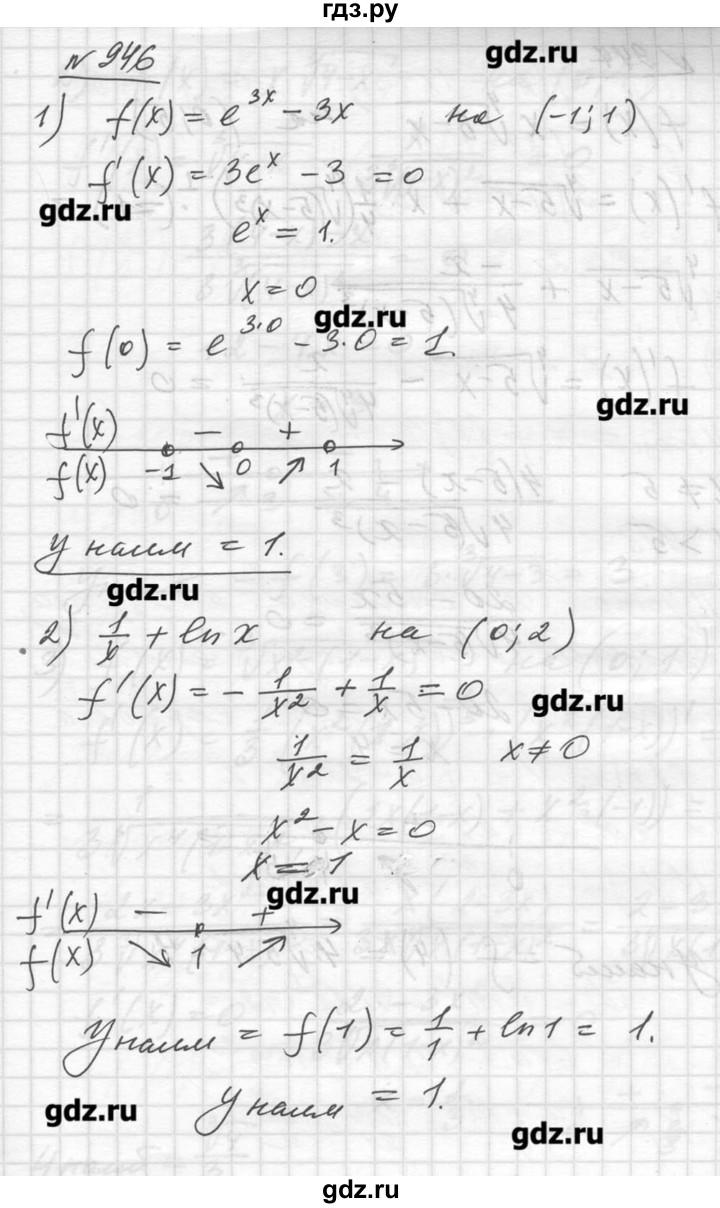 гдз.ру
№ 946
gdz.ru
1) f(x) = e^{3x} - 3x на (-1; 1)
f'(x) = 3e^x - 3 = 0
gdz.ru
e^x = 1.
x = 0
gdz.ru
f(0) = e^{3·0} - 3·0 = 1.
gdz.ru
f'(x) - +
f(x) -1 ↘ 0 ↗ 1
y наим = 1.
gdz.ru
2) 1/x + ln x на (0; 2)
f'(x) = - 1/x² + 1/x = 0
gdz.ru
1/x² = 1/x x ≠ 0
x² - x = 0
x = 1
gdz.ru
f'(x) - +
f(x) ↘ 1 ↗
y наим = f(1) = 1/1 + ln 1 = 1.
y наим = 1.
gdz.ru
gdz.ru
gdz.ru